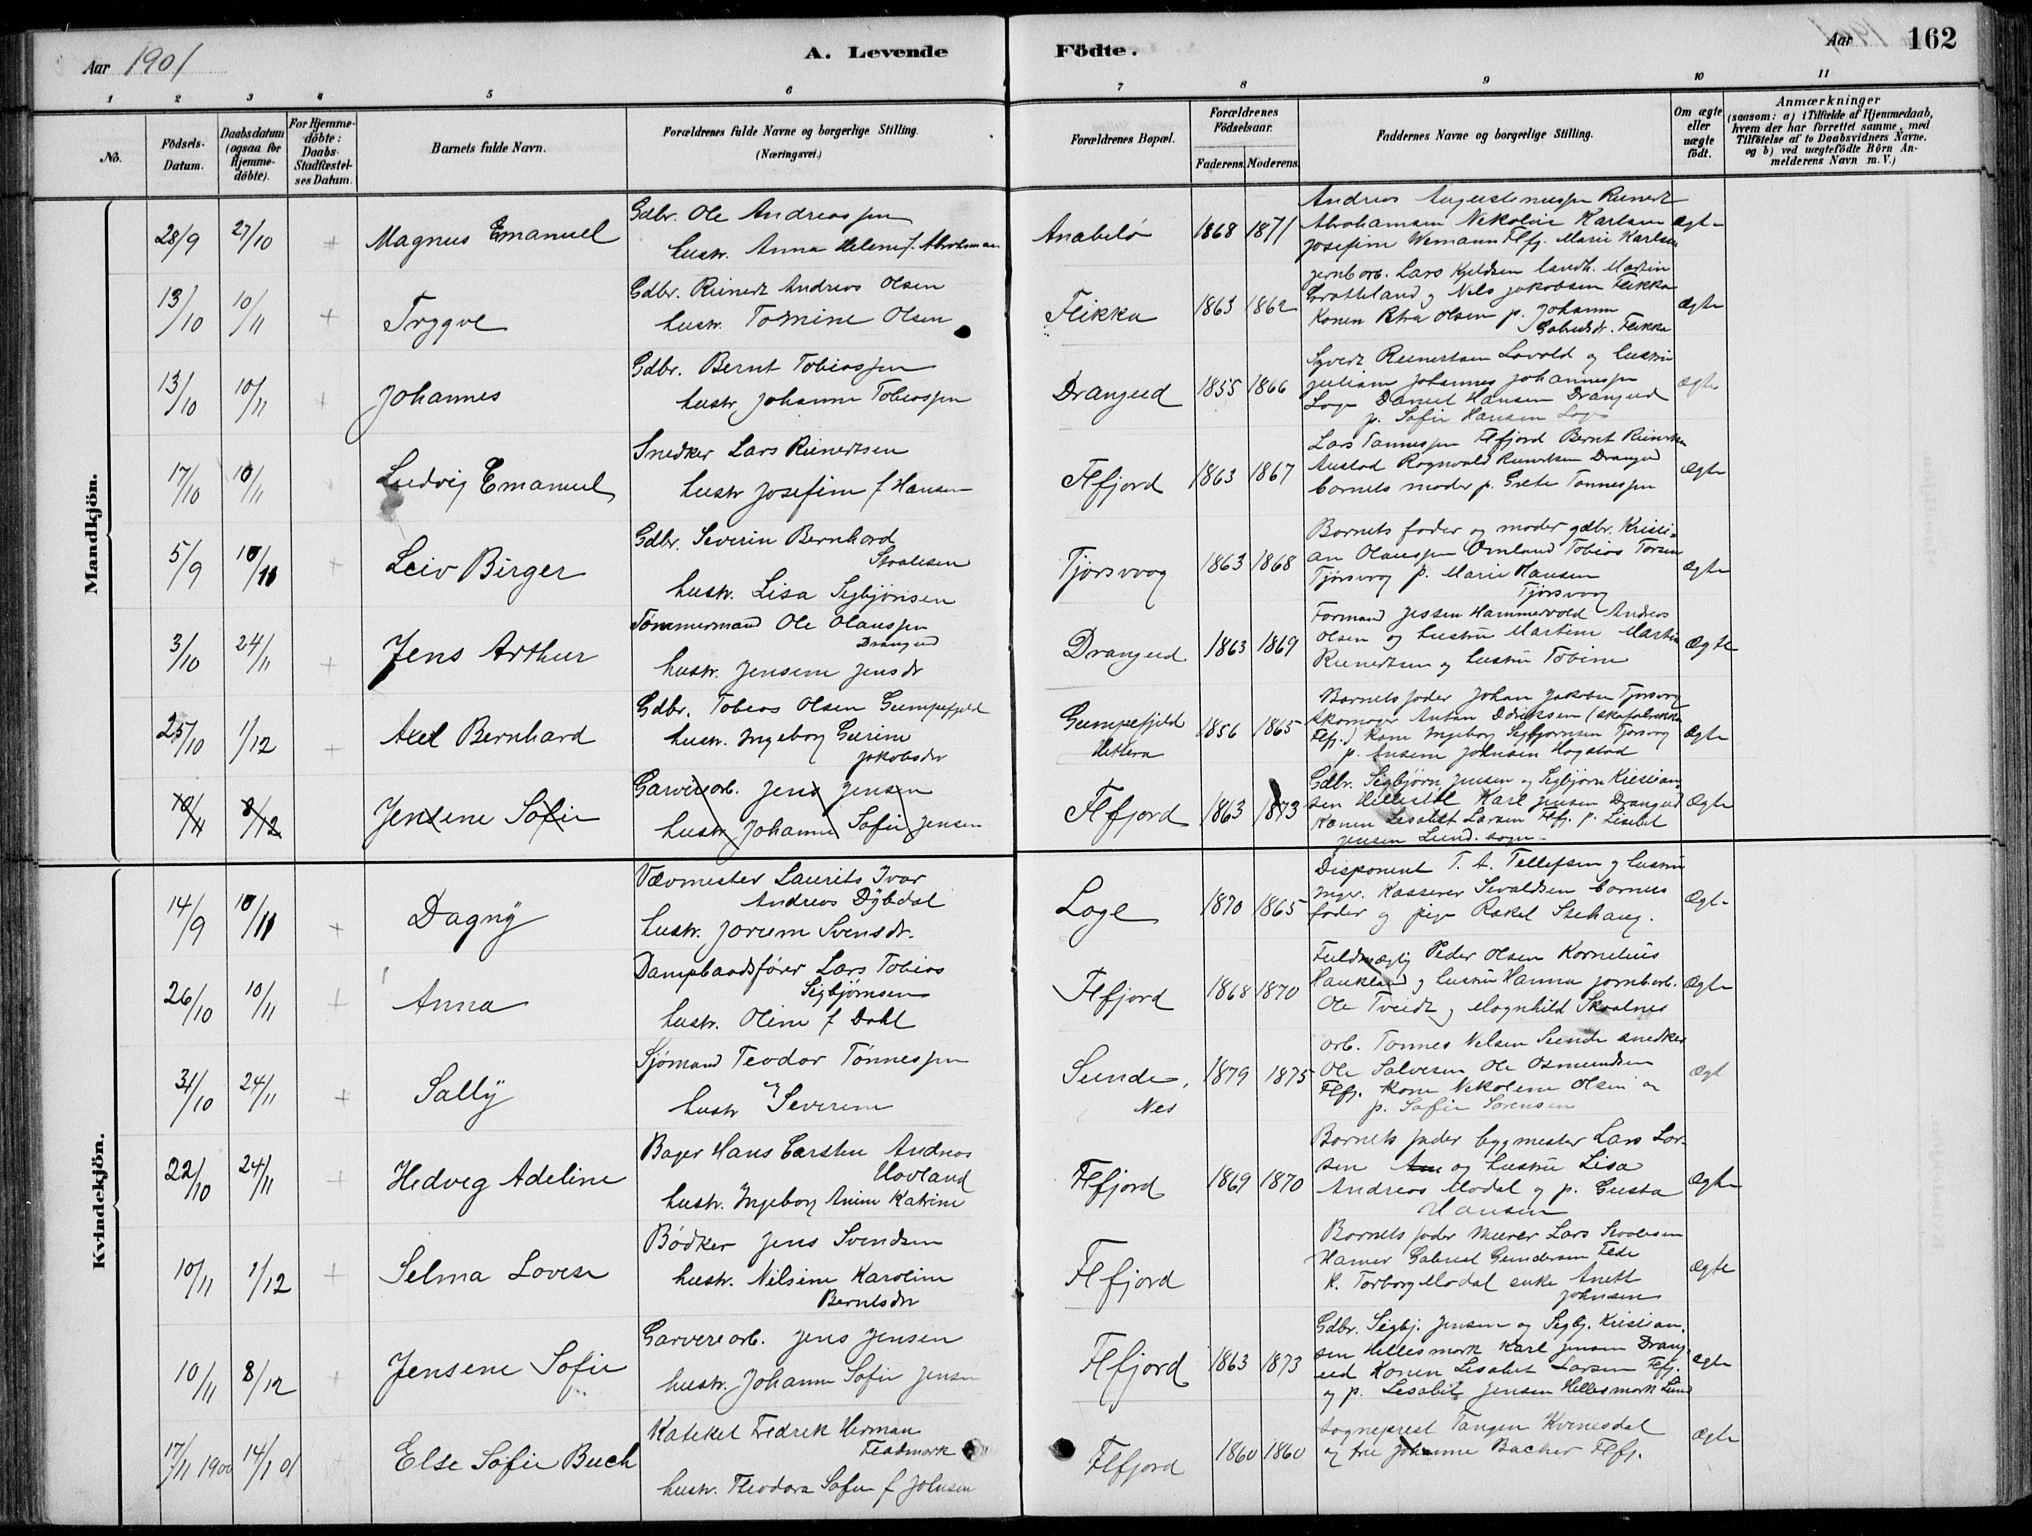 Aar 1901
A. Levende Födte.
Aar
162
1 2 3 4 5 6 7 8 9 10 11
No.
Födsels-Datum.
Daabsdatum (ogsaa for Hjemme-döbte).
For Hjemme-döbte: Daabs-Stadfæstel-ses Datum.
Barnets fulde Navn.
Forældrenes fulde Navne og borgerlige Stilling. (Næringsvei.)
Forældrenes Bopæl.
Forældrenes Födselsaar.
Faderens. Moderens.
Faddernes Navne og borgerlige Stilling.
Om ægte eller uægte födt.
Anmærkninger
(saasom: a) i Tilfælde af Hjemmedaab, hvem der har forrettet samme, med Tilföielse af to Daabsvidners Navne. og b) ved uægtefödte Börn An-melderens Navn m. V.)
Mandkjön.
28/9 27/10 + Magnus Emanuel
Gdbr. Ole Andreassen
hustr. Anna Helene f. Abrahamsen
Anabelø 1868 1871
Andreas Augustinussen Reinert
Abrahamsen Nikolai Karlsen
Josefine Wemann Flfj. Marie Karlsen
Ægte
13/10 10/11 + Trygve
Gdbr. Reinert Andreas Olsen
hustr. Tomine Olsen
Fleikka 1863 1862
jernb arb. Lars Kjeldsen landh. Martin
Grøtteland og Nels Jakobsen Fleikka
Konen Petra Olsen p. Johanne
Gabrielsdr. Fleikka
Ægte
13/10 10/11 + Johannes
Gdbr. Bernt Tobiassen
hustr Johanne Tobiassen
Drangeid 1855 1866
Syvert Reinertsen Lavold og hustru
Juliane Johannes Johannessen
Loge Daniel Hansen Drangeid
p. Sofie Hansen Loge
Ægte
17/10 10/11 Ludvig Emanuel
Snedker Lars Reinertsen
hustr Josefine f Hansen
Flfjord 1863 1867
Lars Tønnessen Flfjord Bernt Reinertsen
Austad Rognvald Reinertsen Drangeid
barnets moder p. Grete Tønnessen
Ægte
5/9 10/11 + Leiv Birger
Gdbr. Severin Bernhard
Staalesen
hustr. Lisa Sigbjørnsen
Tjørsvaag 1863 1868
Barnets fader og moder gdbr. Kristi=
an Olaussen Omland Tobias Torsen
Tjørsvag p. Marie Hansen
Tjørsvaag
Ægte
3/10 24/11 + Jens Arthur
Tømmermand Ole Olaussen
Drangeid
hustr. Jensine Jensdr
Drangeid 1863 1869
Formand Jessen Hammervold Andreas
Olsen og hustru Martine Martin
Reinertsen og hustru Tobine
Ægte
25/10 1/12 Axel Bernhard
Gdbr. Tobias Olsen Gumpefjeld
hustr. Ingeborg Gurine
Jakobsdr
Gumpefjeld
Hetland 1856 1865
Barnets fader Johan Jakobsen Tjørsvag
skomager Anton Didriksen (skofabrikken
Flfj.) Kone Ingeborg Sigbjørnsen Tjørsvag
p. Ansine Johnsen Hogstad
Ægte
10/11 8/12 Jensene Sofie
Garveriarb. Jens Jensen
hustr Johanne Sofie Jensen
Flfjord 1863 1873
Gdbr. Sigbjørn Jensen og Sigbjørn Kristian-
sen Hellestøl Karl Jensen Drangeid
Konen Lisabet Larsen Flfj. p. Lisabet
Jensen Lund sogn
Ægte
Kvindekjön.
14/9 10/11 + Dagny
Vævmester Laurits Ivar
Andreas Dybdal
hustr. Jorine Svensdr.
Loge 1870 1865
Disponent T. A. Tellefsen og hustru
Inger. Kasserer Sivaldsen barnets
fader og pige Rakel Stehaug.
Ægte
26/10 10/11 + Anna
Dampbaadsfører Lars Tobias
Sigbjørnsen
hustr. Oline f Dahl
Flfjord 1868 1870
Fuldmægtig Peder Olsen Kornelius
Haukland og hustru Hanna jernbarb.
Ole Tveidt og Magnhild Skaalnes
Ægte
31/10 24/11 + Sally
Sjømand Teodor Tønnessen
hustr Severine
Sunde, Nes 1879 1875
Arb. Tønnes Nelsen Sunde snedker
Ole Salvesen Ole Osmundsen
Flfj. kone Nikoline Olsen og
p. Sofie Sørensen
Ægt
22/10 24/11 Hedvig Adeline
Bager Hans Carsten Andreas
Hovland
hustr. Ingeborg Anine Katrine
Flfjord 1869 1870
Barnets fader bygmester Lars Lar-
sen og hustru Lisa
Andreas Modal og p. Gusta
Hansen
Ægte
10/11 1/12 + Selma Lovise
Bødker Jens Svendsen
hustr. Nilsine Karoline
Berntsdr
Flfjord
Barnets fader Murer Lars Staalesen
Hamer Gabriel Gundersen Fede
K. Torborg Modal enke Anett
Johnsen
Ægte
10/11 8/12 Jensene Sofie
Garveriarb. Jens Jensen
hustr. Johanne Sofie Jensen
Flfjord 1863 1873
Gdbr. Sigbj. Jensen og Sigbj. Kristian-
sen Hellesmork Karl Jensen Drang-
eid Konen Lesabet Larsen Flfj.
og p. Lesabet Jensen Hellesmork Lund
ægte
17/11 1900 14/1 01 Else Sofie Buch
Kateket Fredrik Herman
Fladmark
hustr. Theodora Sofie f Johnsen
Flfjord 1860 1860
Sogneprest Tangen Kvinesdal
og fru Johanne Bacher Flfj.
Ægte